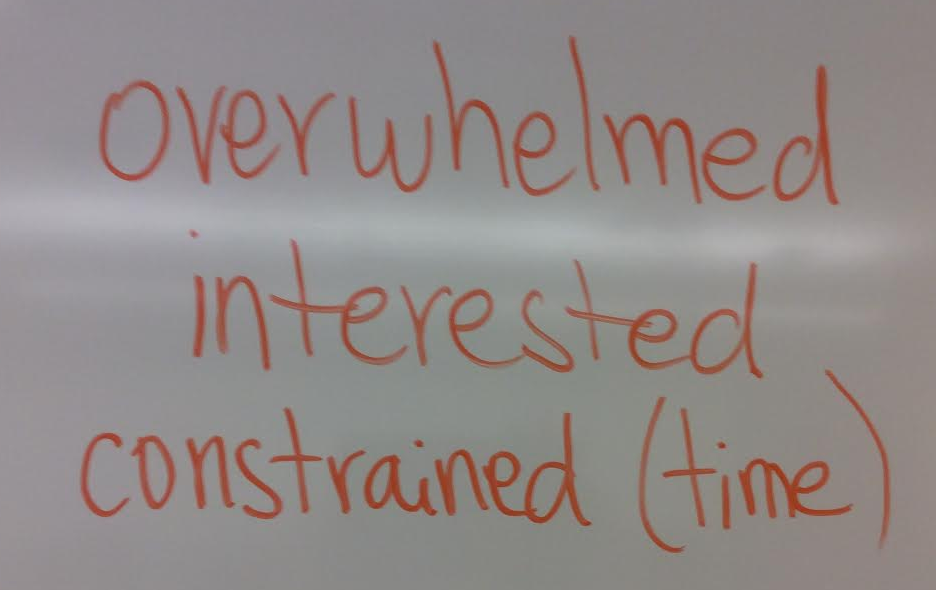 overwhelmed
interested
constrained (time)